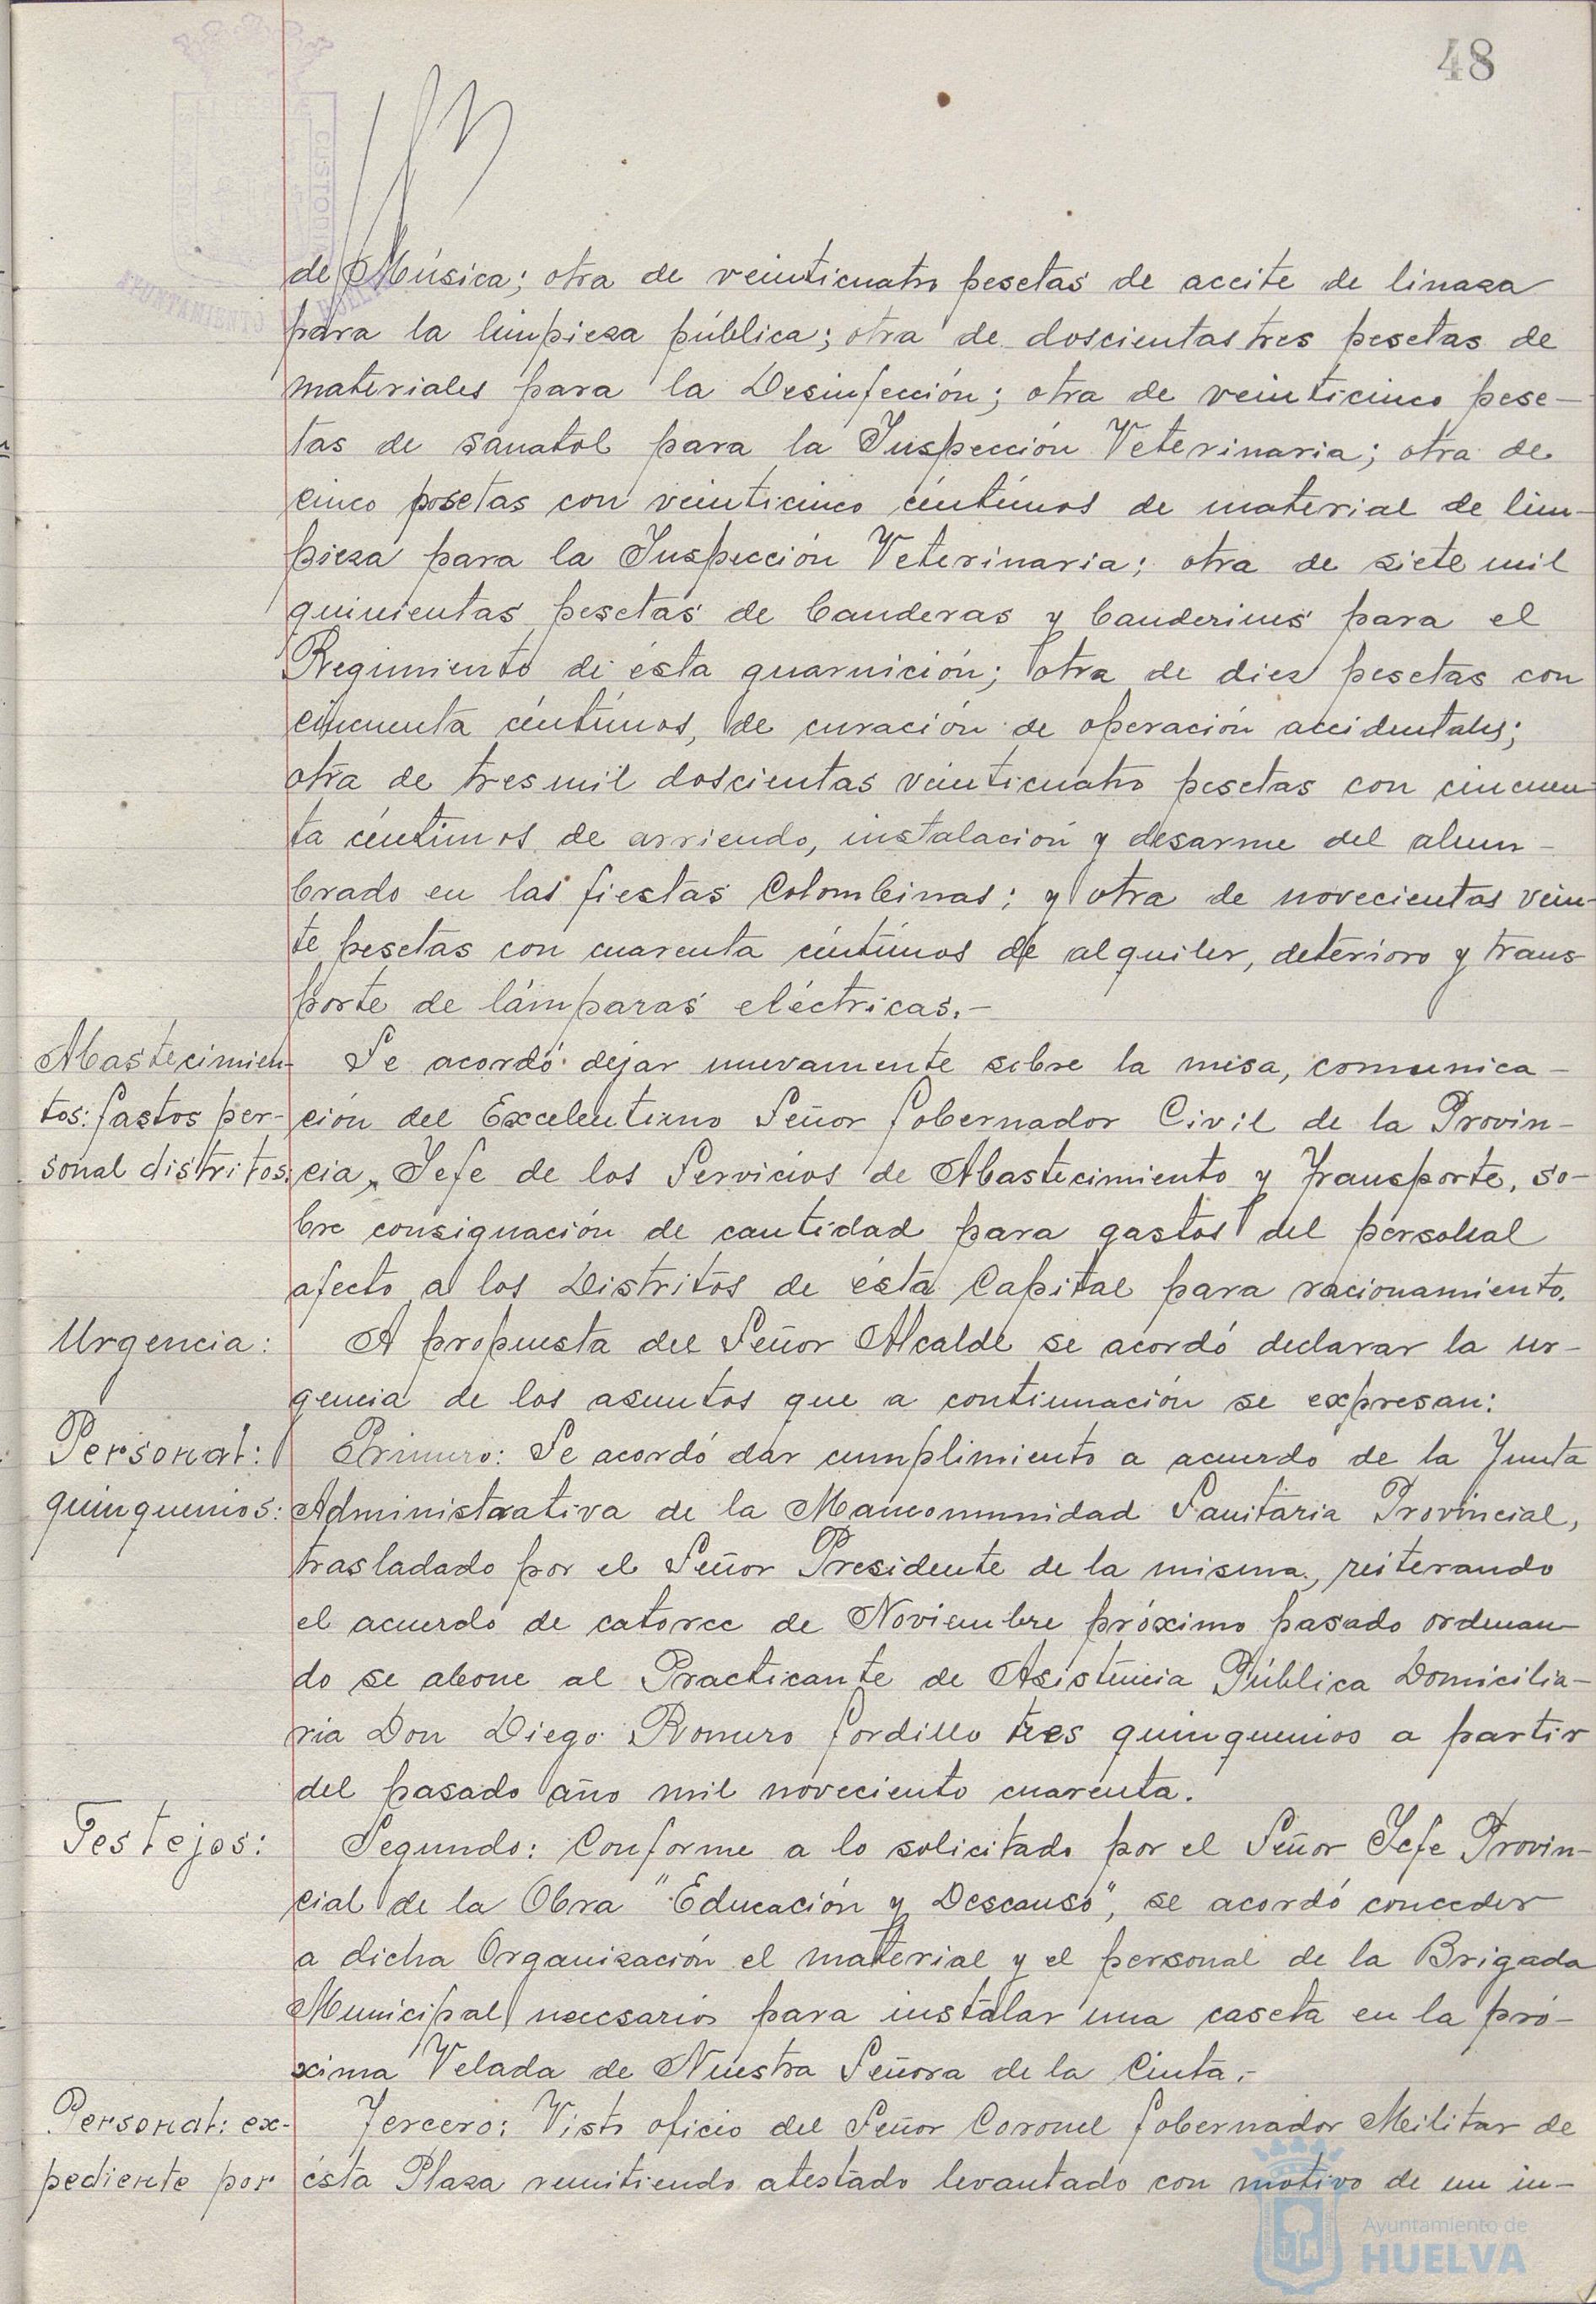 48
de Música; otra de veinticuatro pesetas de aceite de linaza
para la limpieza pública; otra de doscientas tres pesetas de
materiales para la Desinfección; otra de veinticinco pese-
tas de sanatol para la Inspección Veterinaria; otra de
cinco pesetas con veinticinco céntimos de material de lim-
pieza para la Inspección Veterinaria; otra de siete mil
quinientas pesetas de banderas y banderines para el
Regimiento de ésta guarnición; otra de diez pesetas con
cincuenta céntimos, de curación de operación accidentales;
otra de tres mil doscientas veinticuatro pesetas con cincuen-
ta céntimos de arriendo, instalación y desarme del alum-
brado en las fiestas Colombinas; y otra de novecientas vein-
te pesetas con cuarenta céntimos de alquiler, deterioro y trans-
porte de lámparas eléctricas.-
Abastecimien- Se acordó dejar nuevamente sobre la mesa, comunica-
tos: Gastos per- ción del Excelentismo Señor Gobernador Civil de la Provin-
sonal distritos: cia, Jefe de los Servicios de Abastecimiento y Transporte, so-
bre consignación de cantidad para gastos del personal
afecto a los Distritos de ésta Capital para racionamiento.
Urgencia: A propuesta del Señor Alcalde se acordó declarar la ur-
gencia de los asuntos que a continuación se expresan:
Personal: Primero: Se acordó dar cumplimiento a acuerdo de la Junta
quinquenios: Administrativa de la Mancomunidad Sanitaria Provincial,
trasladado por el Señor Presidente de la misma, reiterando
el acuerdo de catorce de Noviembre próximo pasado ordenan-
do se abone al Practicante de Asistencia Pública Domicilia-
ria Don Diego Romero Gordillo tres quinquenios a partir
del pasado año mil noveciento cuarenta.
Festejos: Segundo: Conforme a lo solicitado por el Señor Jefe Provin-
cial de la Obra "Educación y Descanso", se acordó conceder
a dicha Organización el material y el personal de la Brigada
Municipal necesarios para instalar una caseta en la pró-
xima Velada de Nuestra Señora de la Cinta.-
Personal: ex- Tercero: Visto oficio del Señor Coronel Gobernador Militar de
pediente por ésta Plaza remitiendo atestado levantado con motivo de un in-
Ayuntamiento de
HUELVA